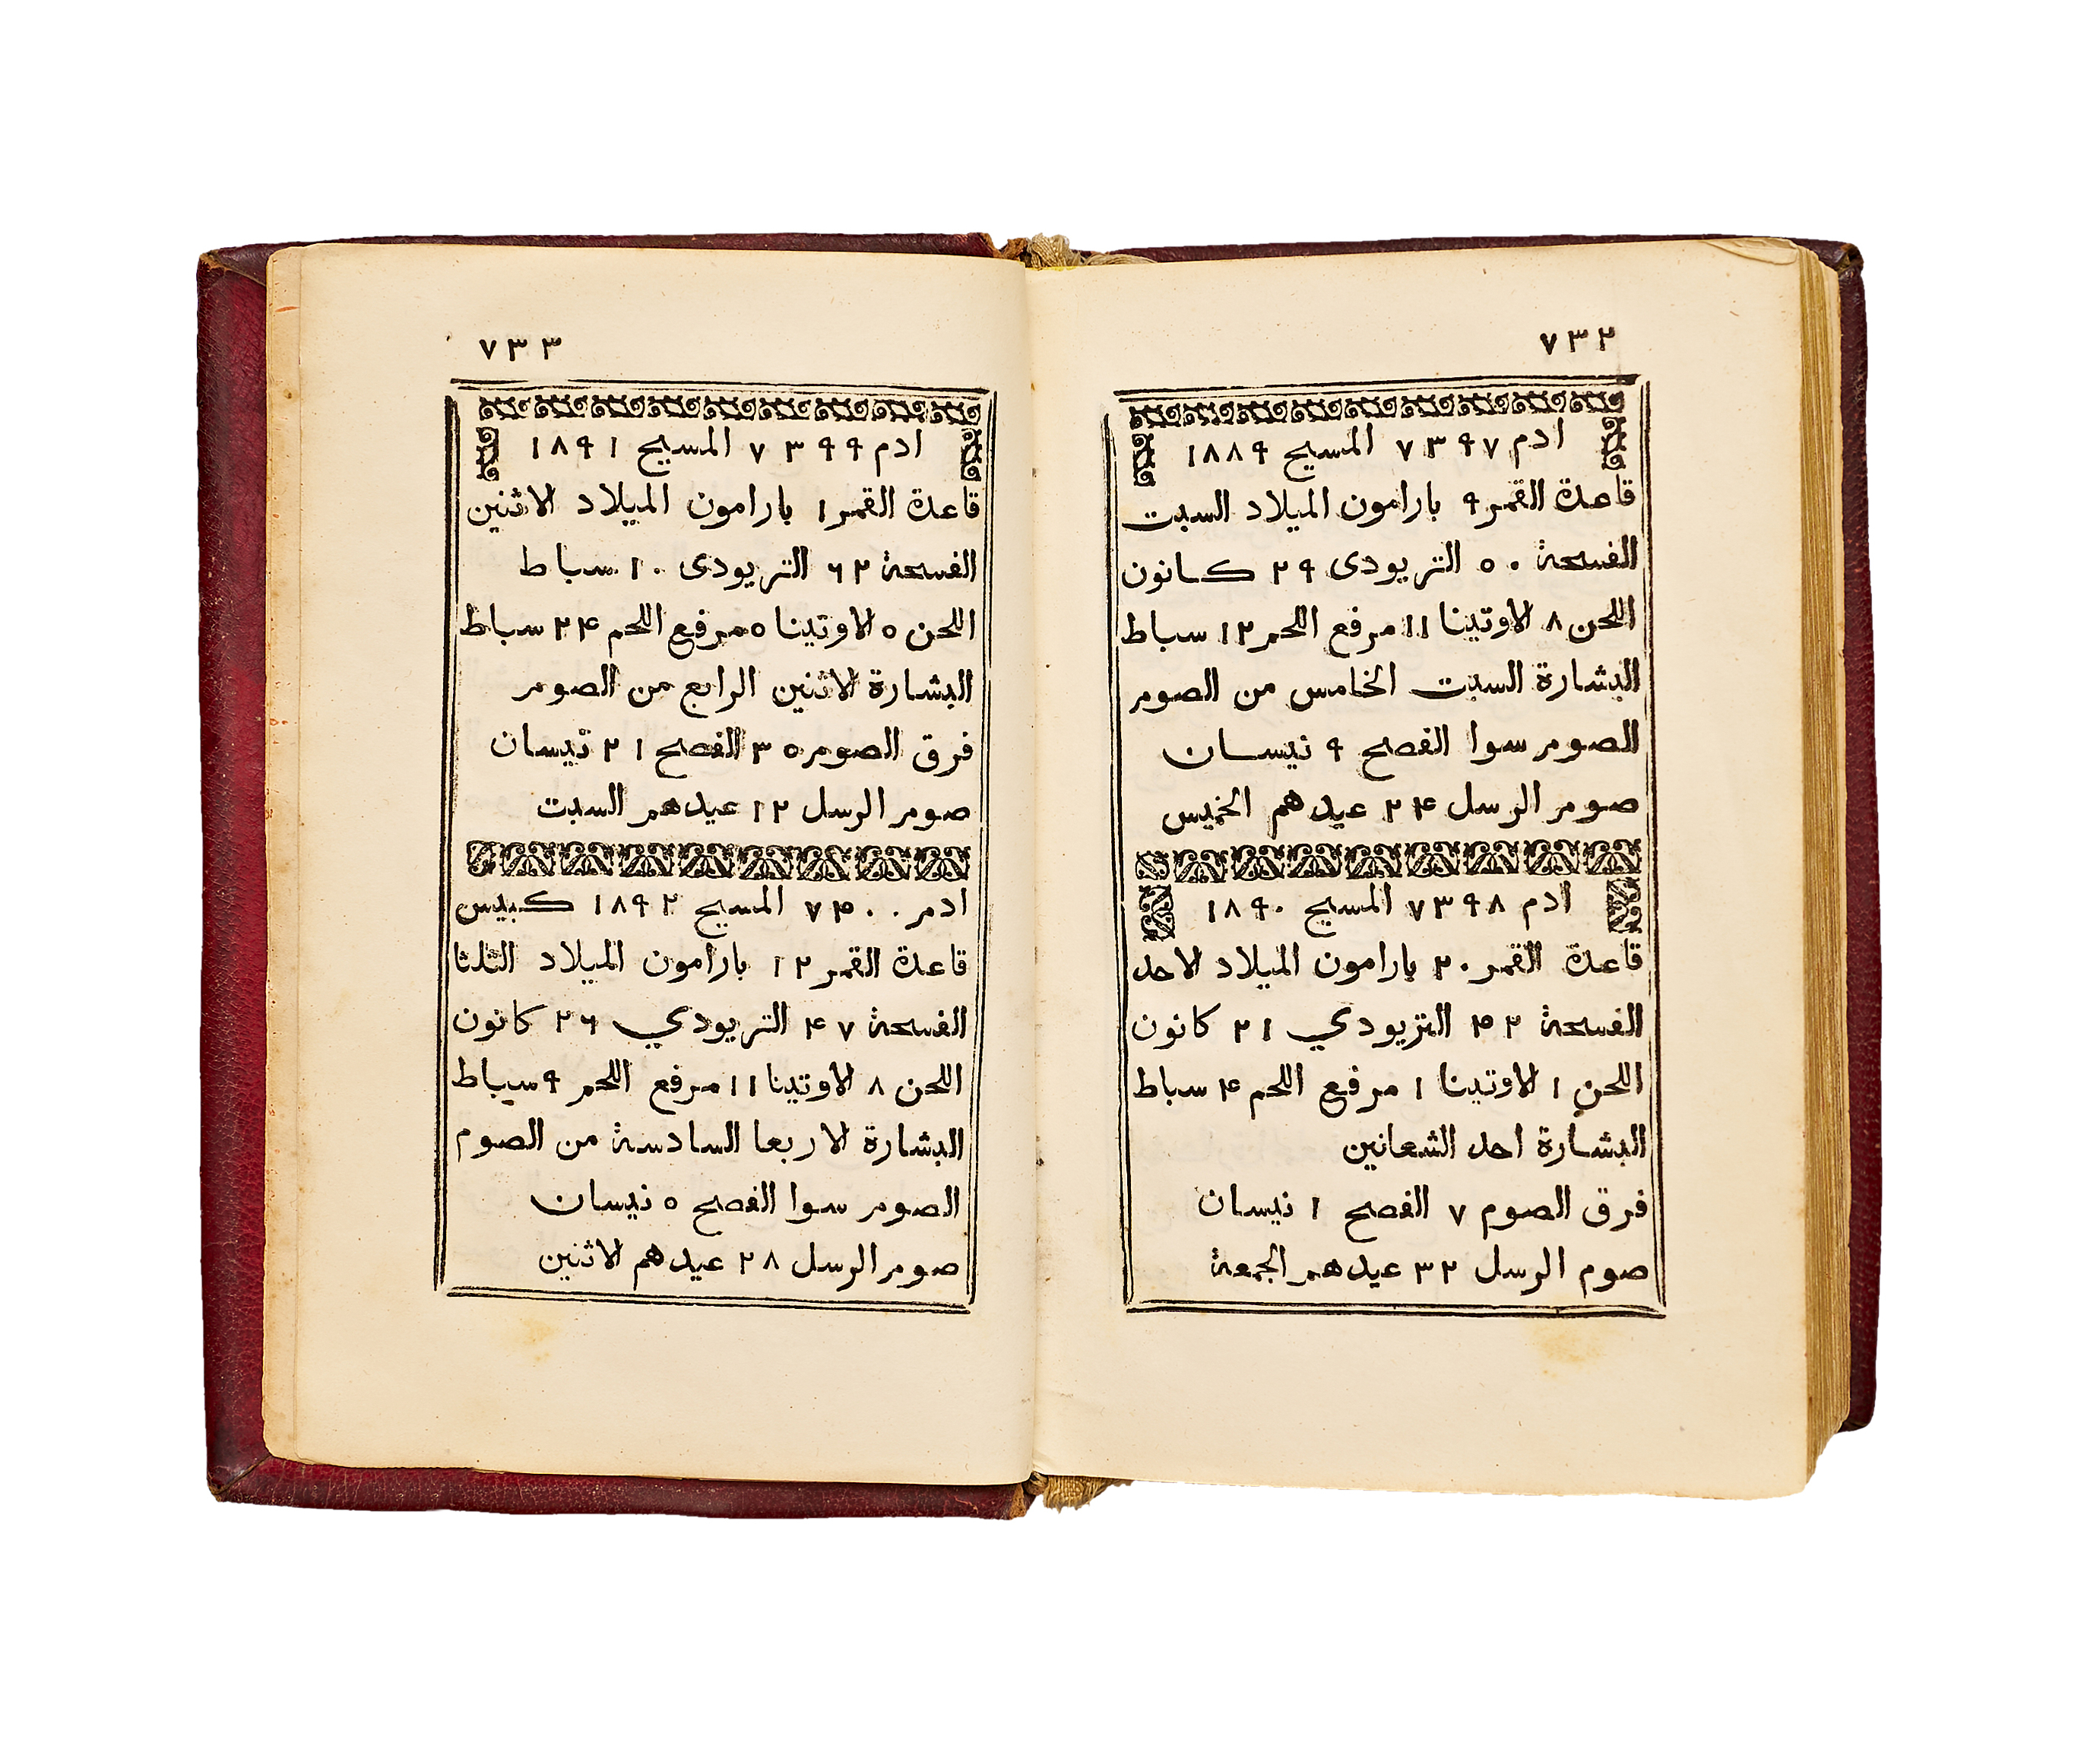 ٧٣٢
ادم ٧٣٩٧ المسيح ١٨٨٩
قاعدة القمر ٩ بارامون الميلاد السبت
الفسحة ٥٠ التريودى ٢٩ كانون
اللحن ٨ الاوتينا ١١ مرفع اللحم ١٢ سباط
البشارة السبت الخامس من الصوم
الصوم سوا الفصح ٩ نيسان
صوم الرسل ٢٤ عيدهم الخميس
ادم ٧٣٩٨ المسيح ١٨٩٠
قاعدة القمر ٢٠ بارامون الميلاد الاحد
الفسحة ٤٢ التريودي ٢١ كانون
اللحن ١ الاوتينا ١ مرفع اللحم ٤ سباط
البشارة احد الشعانين
فرق الصوم ٧ الفصح ١ نيسان
صوم الرسل ٣٢ عيدهم الجمعة
٧٣٣
ادم ٧٣٩٩ المسيح ١٨٩١
قاعدة القمر ١ بارامون الميلاد الاثنين
الفسحة ٦٢ التريودى ١٠ سباط
اللحن ٥ الاوتينا ٥ مرفع اللحم ٢٤ سباط
البشارة الاثنين الرابع من الصوم
فرق الصوم ٣٥ الفصح ٢١ نيسان
صوم الرسل ١٢ عيدهم السبت
ادم ٧٤٠٠ المسيح ١٨٩٢ كبيس
قاعدة القمر ١٢ بارامون الميلاد الثلثا
الفسحة ٤٧ التريودي ٢٦ كانون
اللحن ٨ الاوتينا ١١ مرفع اللحم ٩ سباط
البشارة الاربعا السادسة من الصوم
الصوم سوا الفصح ٥ نيسان
صوم الرسل ٢٨ عيدهم الاثنين